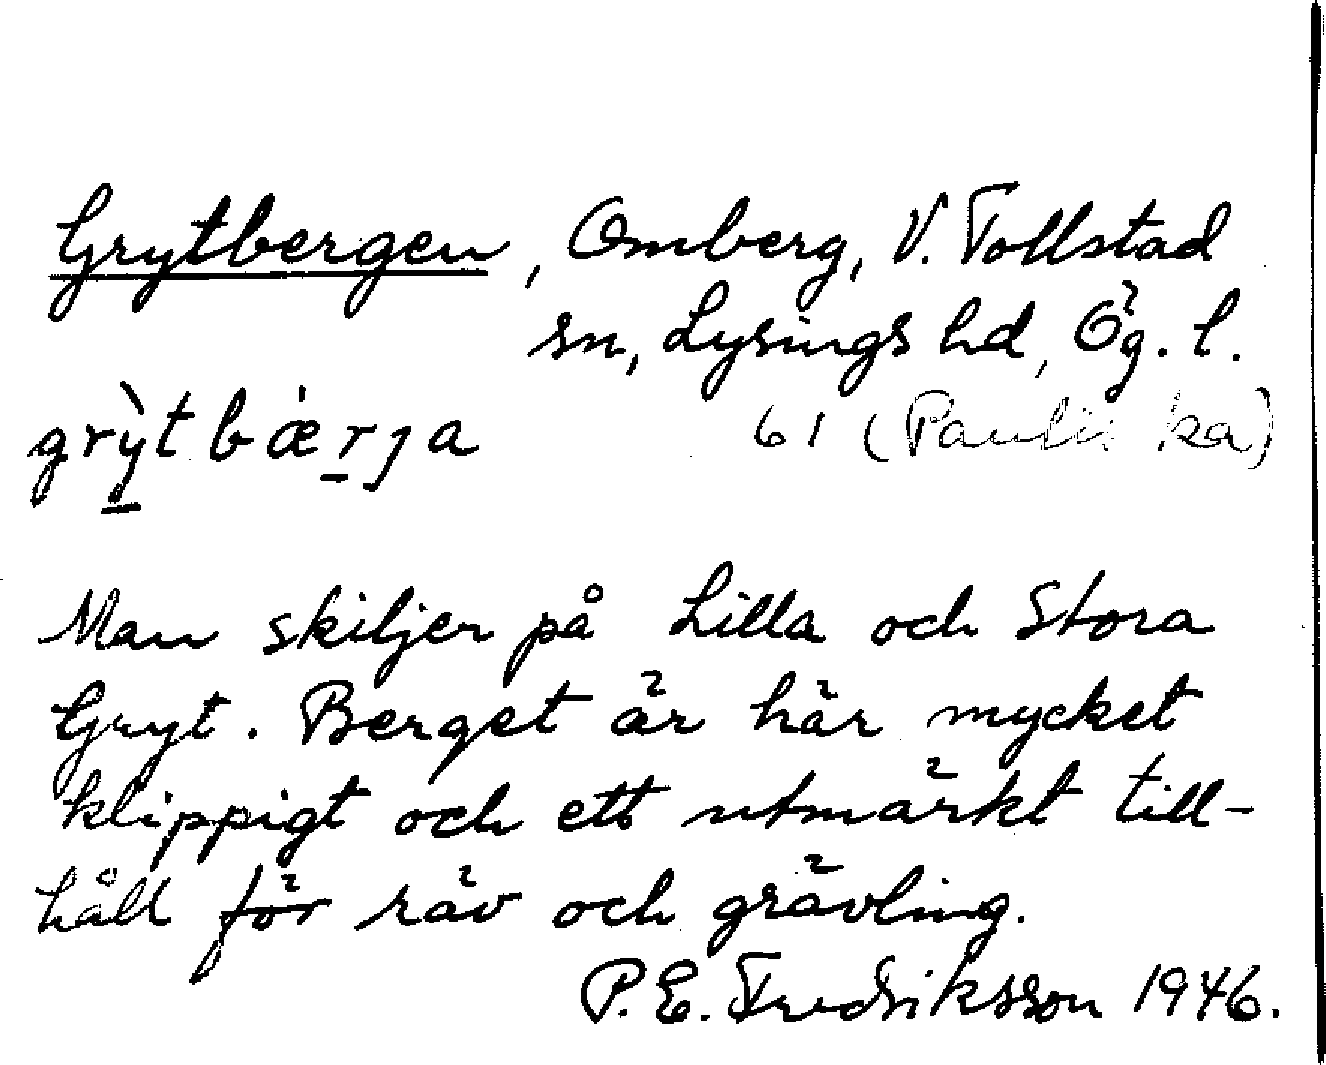 Grytbergen, Omberg, V. Tollstad
sn, Lysings hd, Ög. l.
grỳt bǽrȷa 61 (Paulis ka)
Man skiljer på Lilla och Stora
Gryt. Berget är här mycket
klippigt och ett utmärkt till-
håll för räv och grävling.
P. E. Fredriksson 1946.